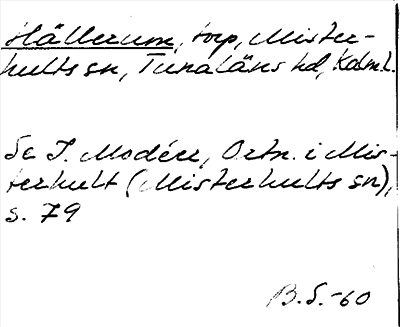 Hällerum, torp, Mister-
hults sn, Tunaläns hd, Kalm l.
Se I. Modéer, Ortn. i Mis-
terhult (Misterhults sn),
s. 79
B.S. -60